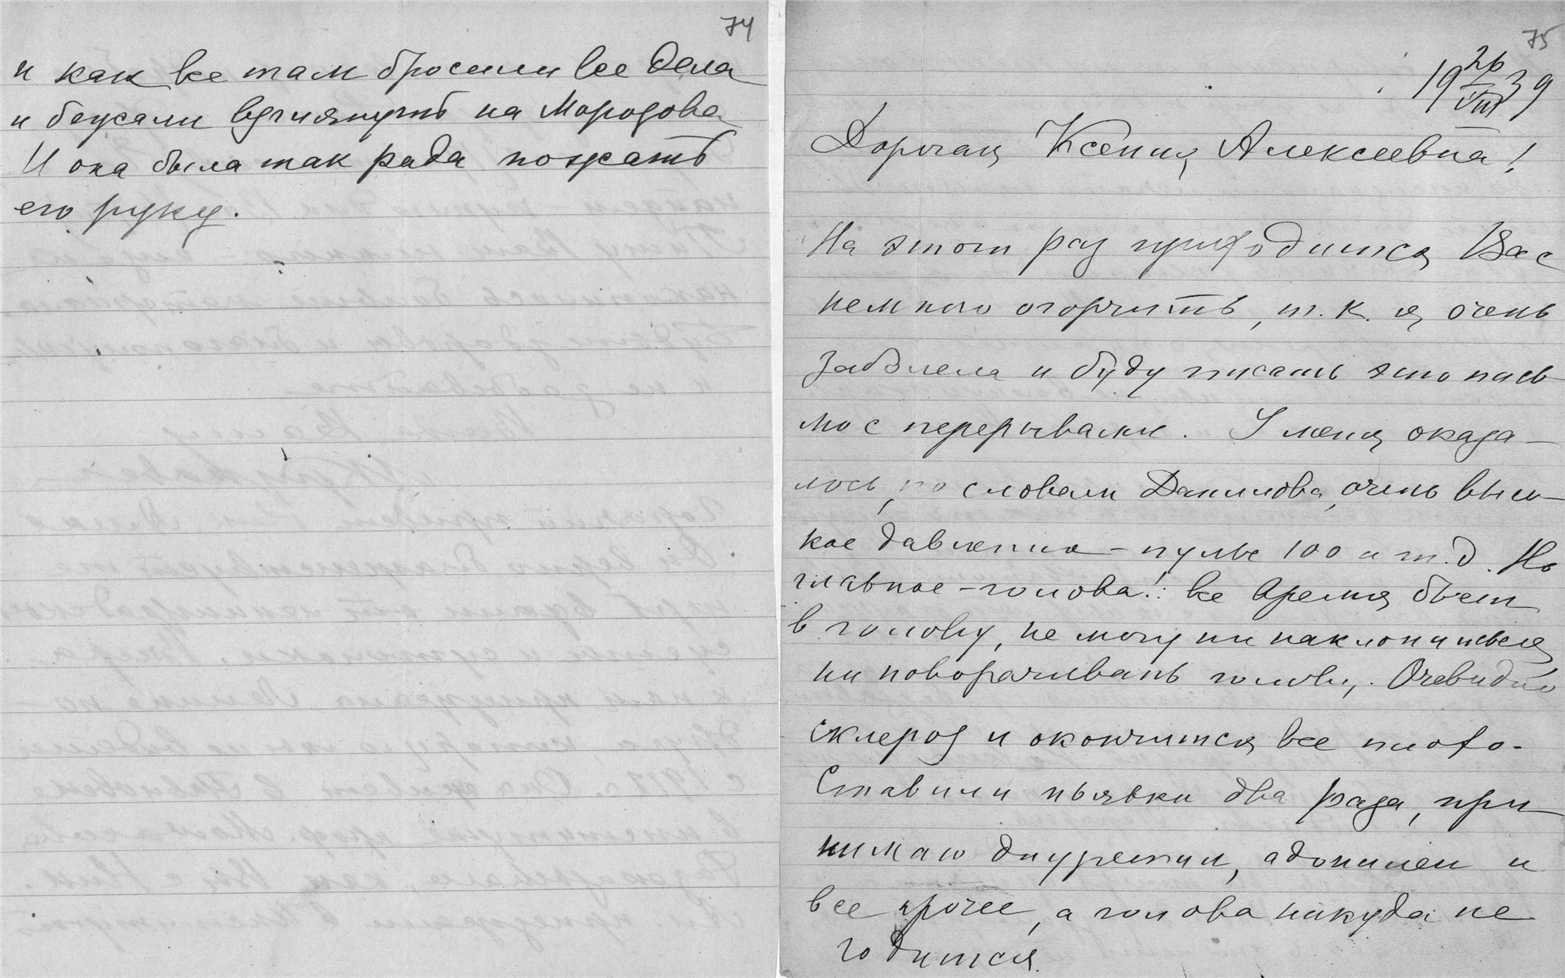 74
и как все там бросили все дела
и бежали взглянуть на Морозова
И она была так рада пожать
его руку.
75
19 26/VIII 39
Дорогая Ксения Алексеевна!
На этот раз приходится Вас
немного огорчить, т.к. я очень
заболела и буду писать это пись
мо с перерывами. У меня оказа-
лось, по словам Данилова, очень высо-
кое давление - пульс 100 и т.д. Но
главное - голова!: все время бьет
в голову, не могу ни наклониться
ни поворачивать голову. Очевидно
склероз и окончится все плохо.
Ставили пьявки два раза, при
нимаю диуретин, адонилен и
все прочее, а голова никуда не
годится.